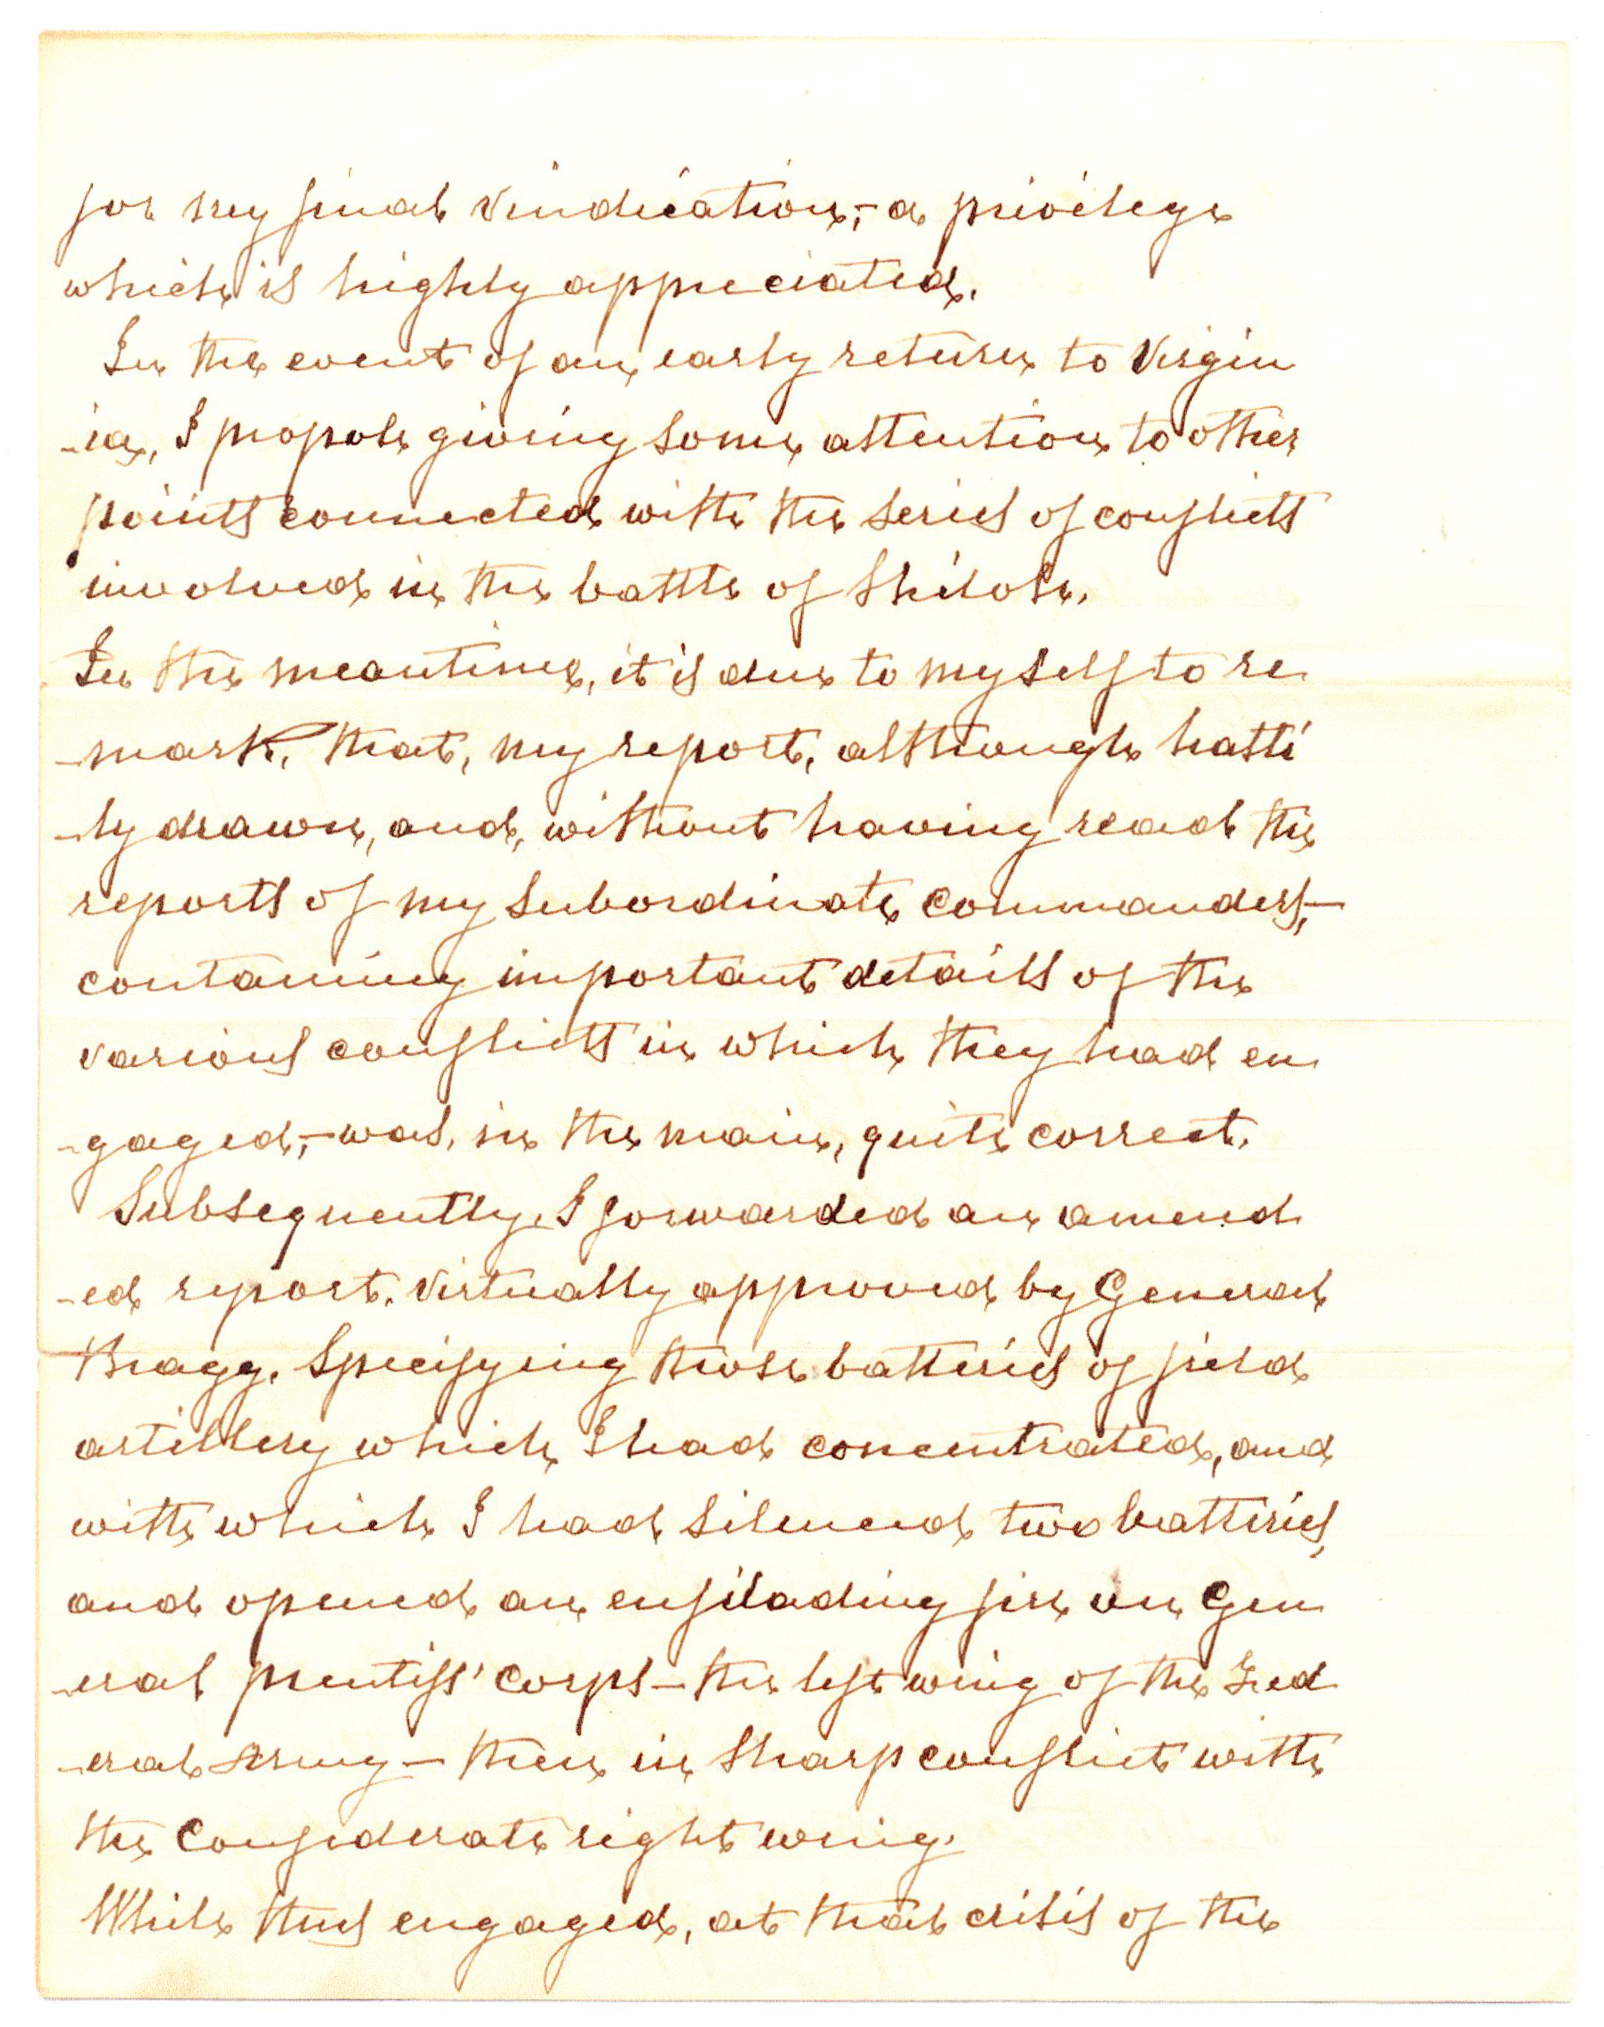 for my final vindication,- a privilege
which is highly appreciated.
In the event of an early return to Virgin
-ia, I propose giving some attention to other
points connected with the series of conflicts
involved in the battle of Shiloh.
In the meantime, it is due to myself to re
-mark, that, my report, although hasti
-ly drawn, and, without having read the
reports of my subordinate commanders,-
containing important details of the
various conflicts in which they had en
-gaged,- was, in the main, quite correct.
Subsequently, I forwarded an amend
-ed report, virtually approved by General
Bragg, specifying those batteries of field
artillery which I had concentrated, and
with which I had silenced two batteries,
and opened an enfilading fire on Gen
-eral Prentiss' corps - the left wing of the Fed
-eral Army - then in sharp conflict with
the Confederate right wing.
While thus engaged, at that crisis of the